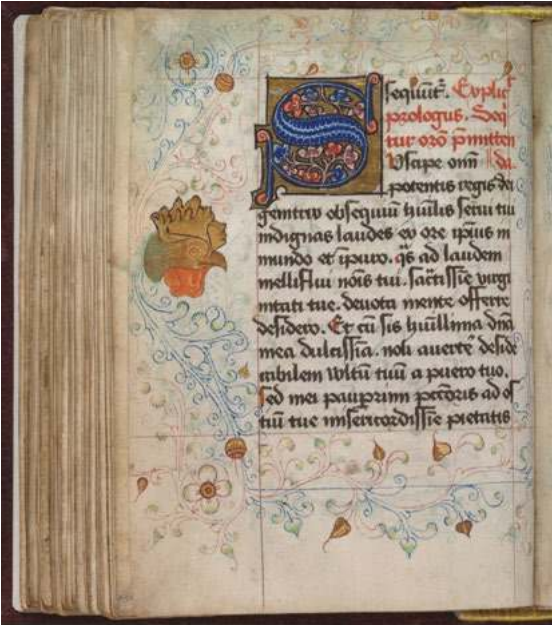 sequũt᷑. Explic̃
prologus. Seq̃
tur orõ p̃mitten
Uscipe om̃i da.
potentis regis dei
genitrix obsequiũ hũilis serui tui
indignas laudes ex ore ip̃ius in
mundo et ĩpuro. q̃s ad laudem
melliflui nõis tui. sãctissĩe uirgi
nitati tue. deuota mente offerre
desidero. Et cũ sis hũillima dña
mea dulcissĩa. noli auertẽ deside
rabilem vultũ tuũ a puero tuo.
sed mei pauprimi pctõris ad os
tiũ tue misericordissĩe pietatis